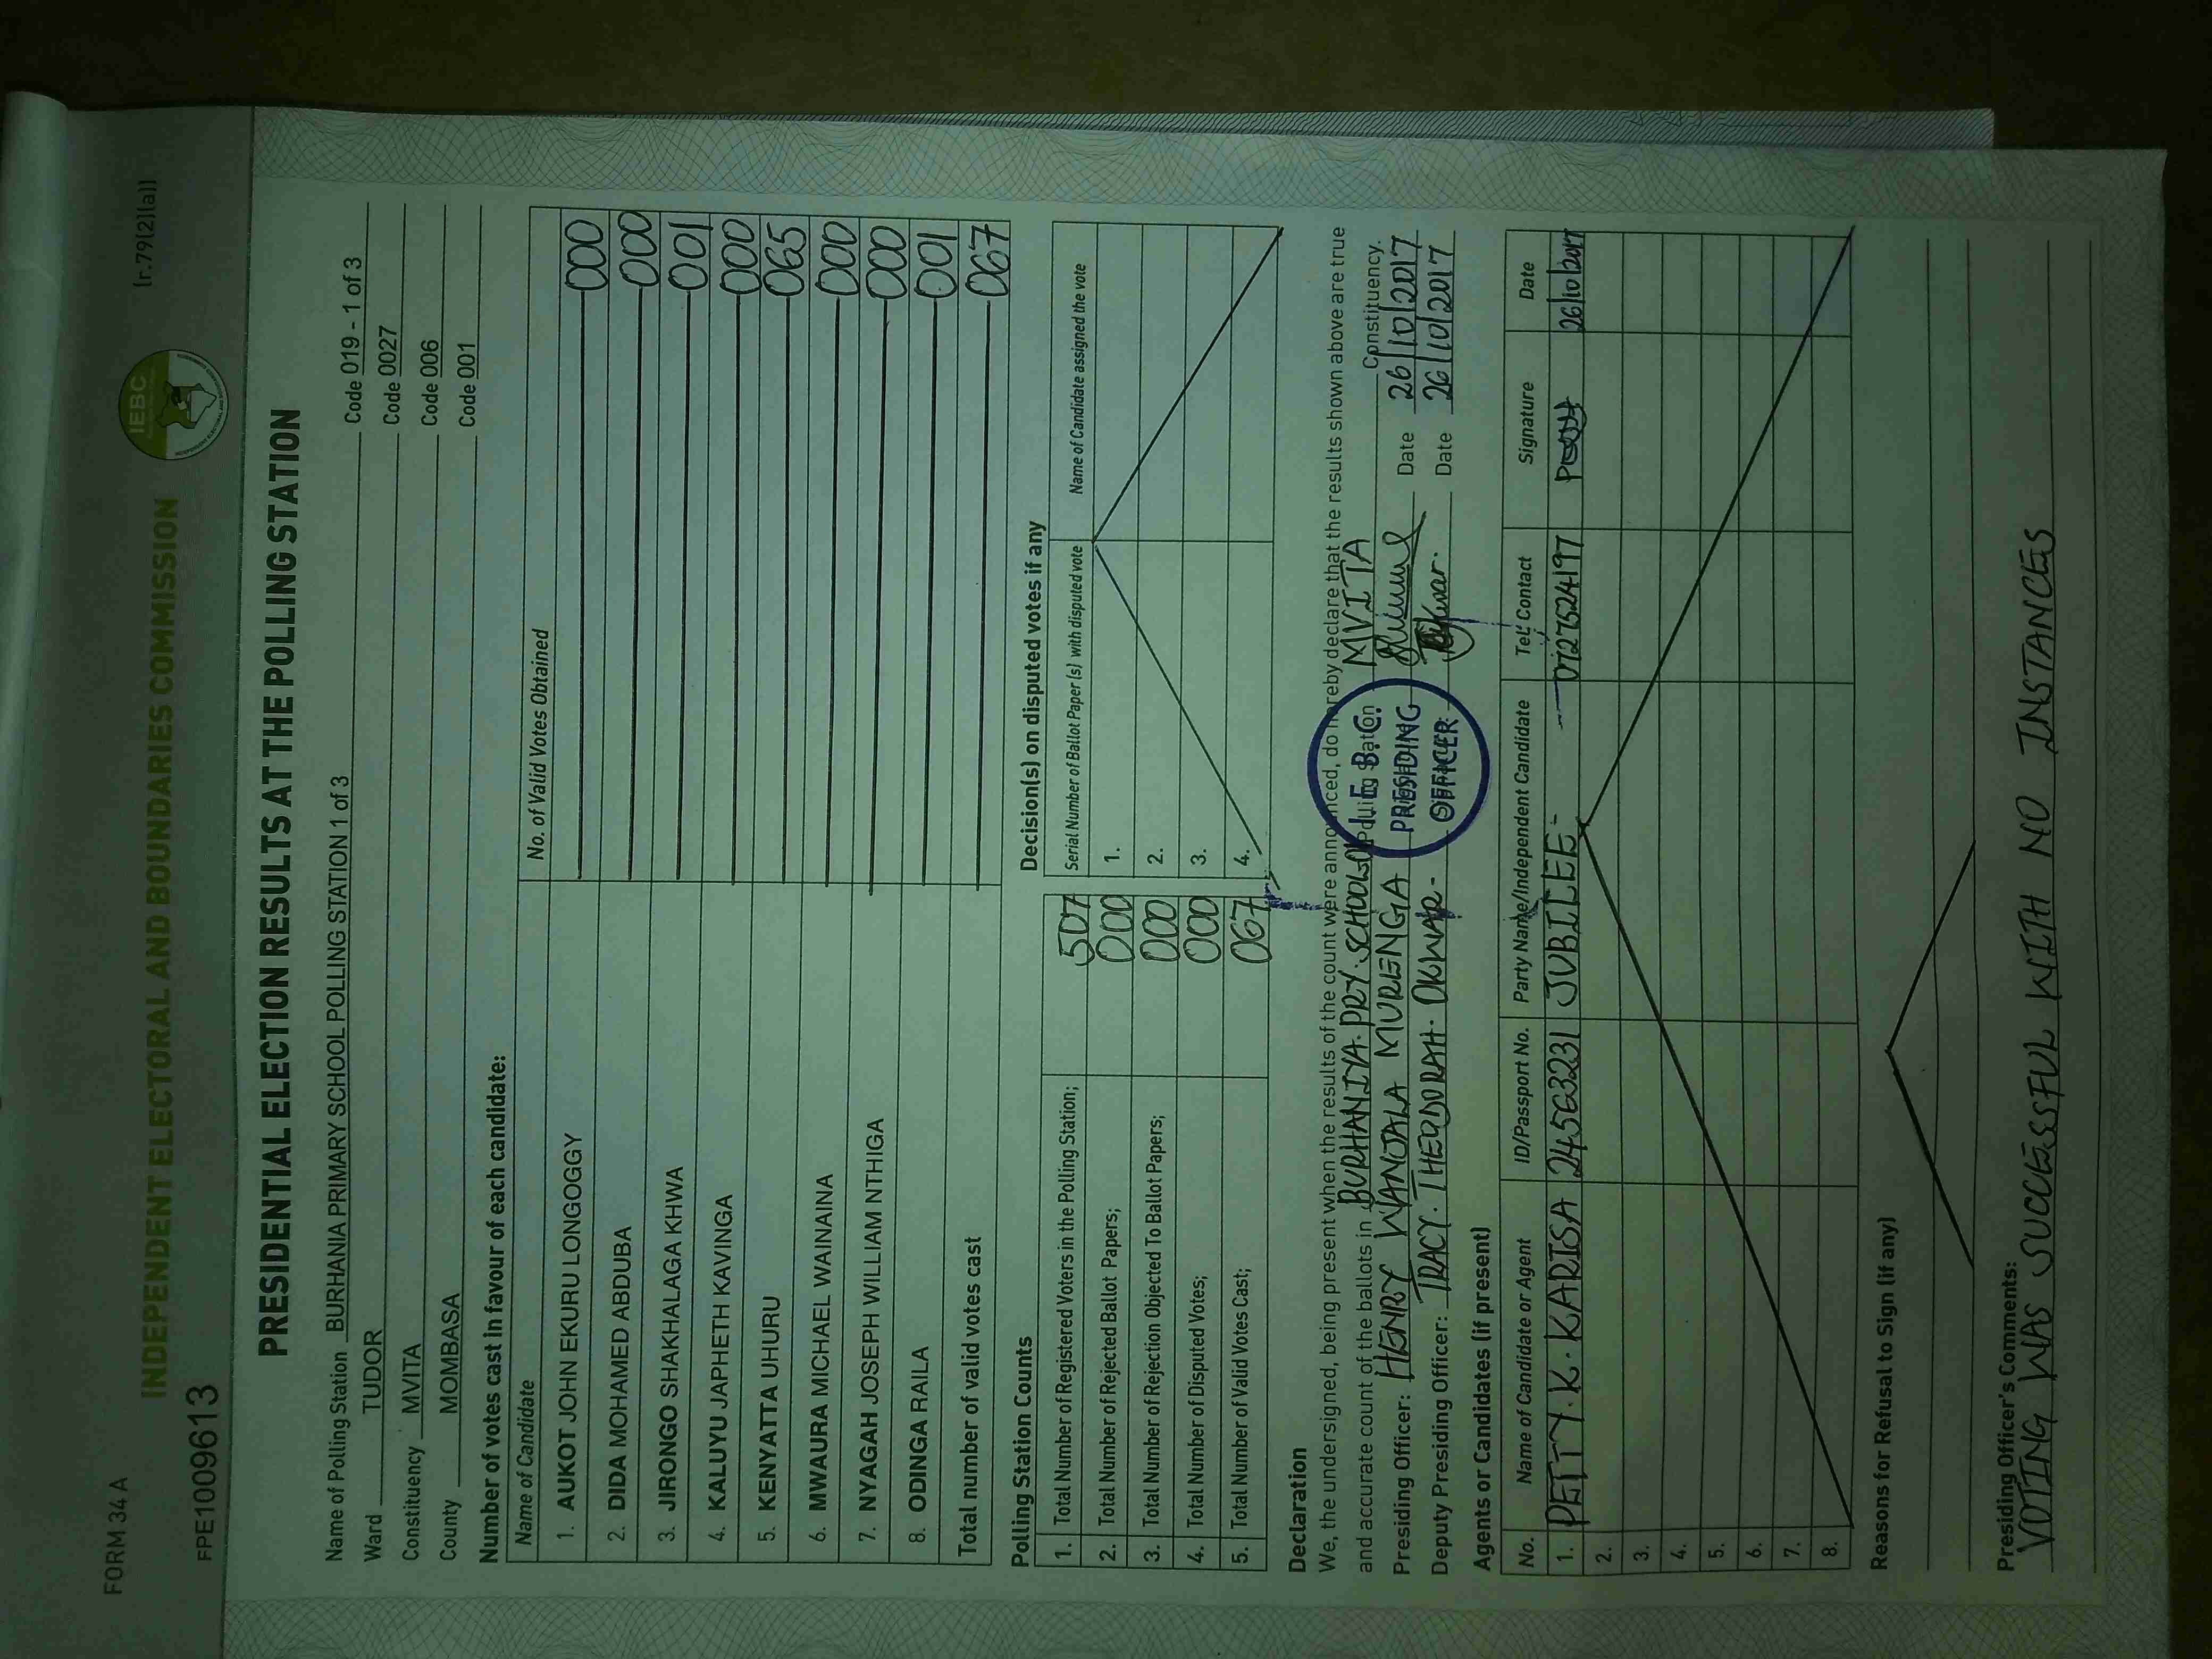 FORM 34 A
[r.79(2)(a)]
INDEPENDENT ELECTORAL AND BOUNDARIES COMMISSION
IEBC
FPE1009613
PRESIDENTIAL ELECTION RESULTS AT THE POLLING STATION
Name of Polling Station BURHANIA PRIMARY SCHOOL POLLING STATION 1 of 3 Code 019 - 1 of 3
Ward TUDOR Code 0027
Constituency MVITA Code 006
County MOMBASA Code 001
Number of votes cast in favour of each candidate:
Name of Candidate No. of Valid Votes Obtained
1. AUKOT JOHN EKURU LONGOGGY 000
2. DIDA MOHAMED ABDUBA 000
3. JIRONGO SHAKHALAGA KHWA 001
4. KALUYU JAPHETH KAVINGA 000
5. KENYATTA UHURU 065
6. MWAURA MICHAEL WAINAINA 000
7. NYAGAH JOSEPH WILLIAM NTHIGA 000
8. ODINGA RAILA 001
Total number of valid votes cast 067
Polling Station Counts
1. Total Number of Registered Voters in the Polling Station; 507
2. Total Number of Rejected Ballot Papers; 000
3. Total Number of Rejection Objected To Ballot Papers; 000
4. Total Number of Disputed Votes; 000
5. Total Number of Valid Votes Cast; 067
Decision(s) on disputed votes if any
Serial Number of Ballot Paper (s) with disputed vote Name of Candidate assigned the vote
1.
2.
3.
4.
Declaration
We, the undersigned, being present when the results of the count were announced, do hereby declare that the results shown above are true
and accurate count of the ballots in BURHANIYA. PRY. SCHOOL Polling Station MVITA Constituency.
Presiding Officer: HENRY WANJALA MURENGA Date 26/10/2017
Deputy Presiding Officer: TRACY. THEODORAH. OKWAR- Date 26/10/2017
I.E.B.C.
PRESIDING
OFFICER
Agents or Candidates (if present)
No. Name of Candidate or Agent ID/Passport No. Party Name/Independent Candidate Tel. Contact Signature Date
1. PETTY. K. KARISA 24563231 JUBILEE- 0727524197 26/10/2017
2.
3.
4.
5.
6.
7.
8.
Reasons for Refusal to Sign (if any)
Presiding Officer's Comments:
VOTING WAS SUCCESSFUL WITH NO INSTANCES